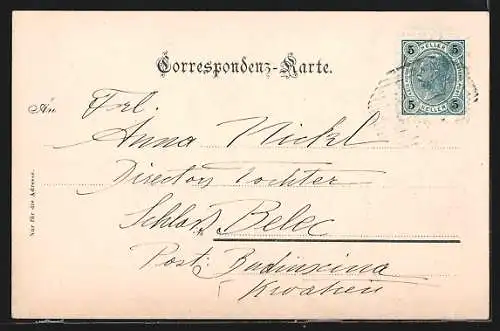 Correspondenz-Karte.
5 HELLER 5
5 HELLER 5
An Frl.
Anna Nickl
Directors Tochter
Schloss Belec
Post: Budinscina
Kroatien
Nur für die Adresse.